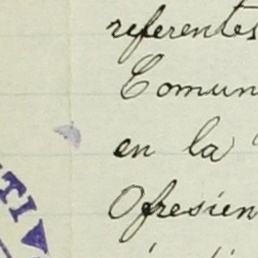 referentes
Comun
en la
Ofresien
TIV